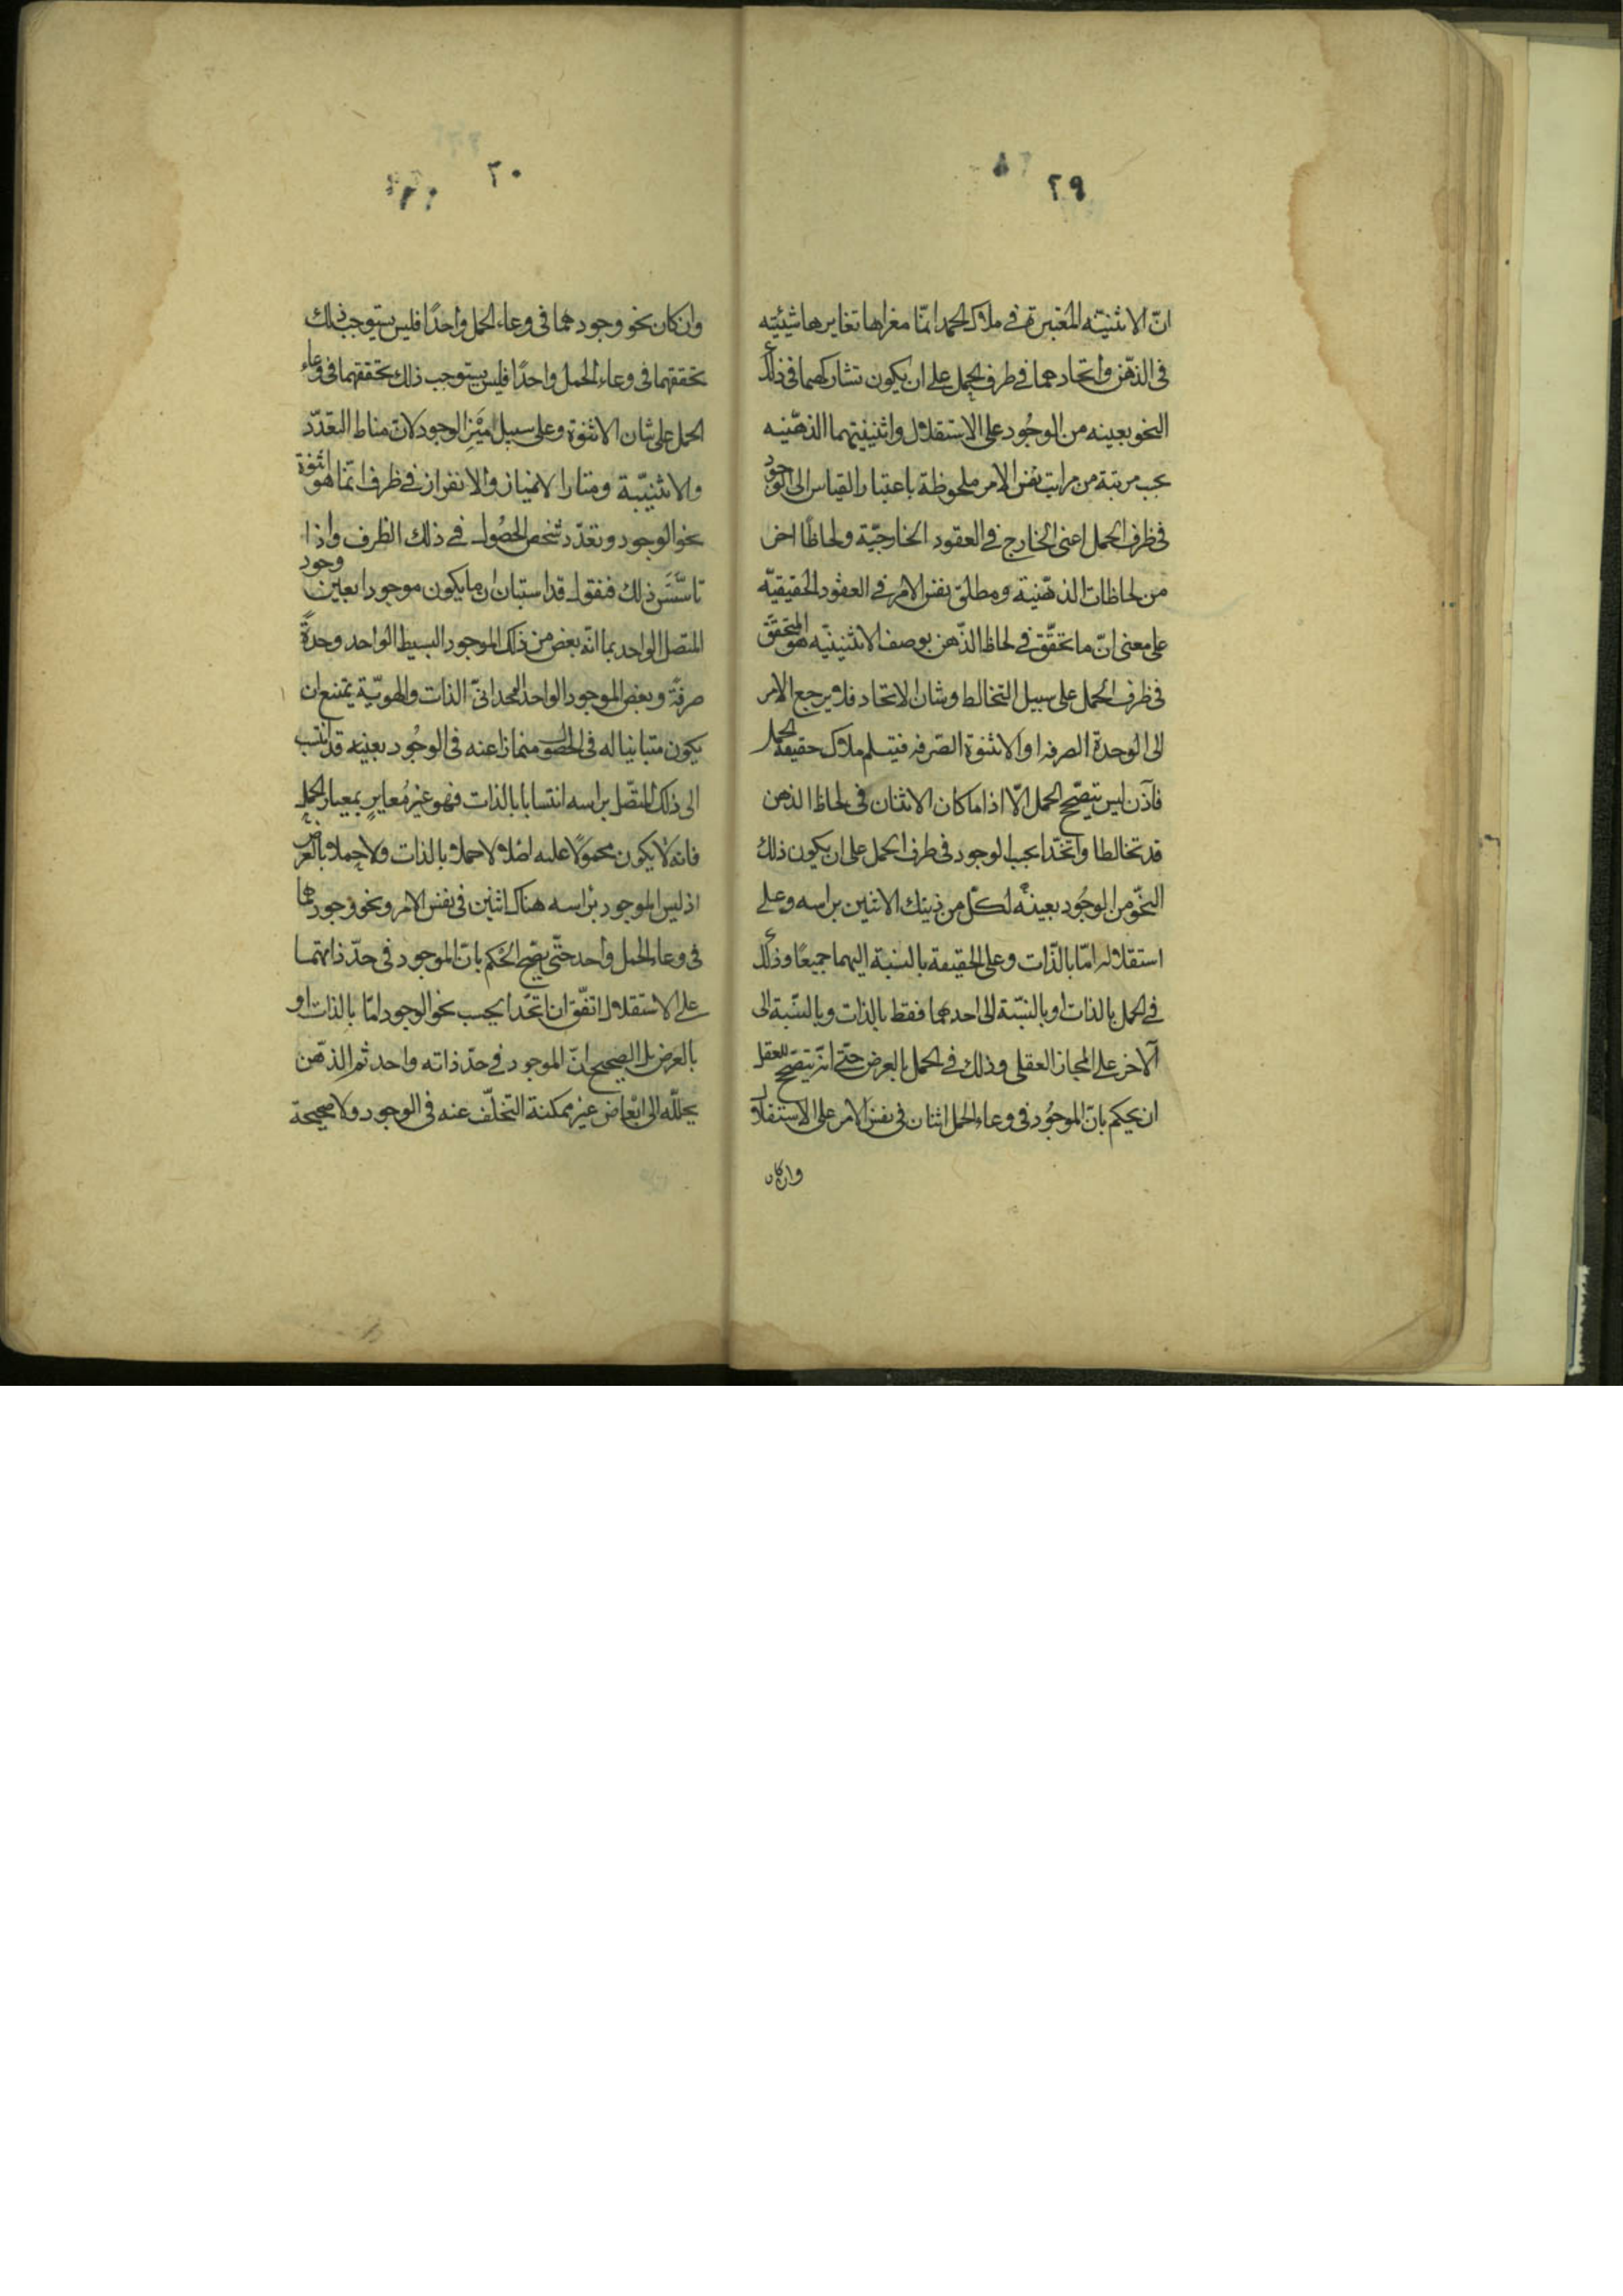 ٢٩
انّ الاثنينيّه المعتبرة في ملاك الحمل انمّا مغزاها تغايرها شيئيّه
فى الذّهن واتّحادهما في ظرف الحمل على ان يكون تشاركهما فى ذلك
النحو بعينه من الوجُود على الاستقلال واثنينيتهما الذهنيّه
بحسب مرتبة من مراتب نفس الامر ملحوظة باعتبار القياس الى الوجود
فى ظرف الحمل اعنى الخارج فى العقود الخارجيّة ولحاظًا اخر
من لحاظات الذهنية ومطلق نفس الامر في العقود الحقيقيّه
على معنى انّ ما تحقّق في لحاظ الذّهن بوصف الاثنينيّه هو المتحقّق
فى ظرف الحمل على سبيل التخالط وشان الاتحاد فلا يرجع الامر
الى الوحدة الصرفه او الاثنوة الصرفه فنيسلم ملاك حقيقة الحمل
فاذن ليس يتصّحح الحمل الّا اذا ما كان الاثنان فى لحاظ الذهن
قد تخالطا واتّحدا بحسب الوجود فى ظرف الحمل على ان يكون ذلك
النحّو من الوجُود بعينهٖ لكلّ من ذينك الاثنين براسه وعلى
استقلاله امّا بالذّات وعلى الحقيقة بالنسبة اليهما جميعًا وذلك
في الحمل بالذات او بالنسّبة الى احدهما فقط بالذات وبالنسّبة الى
الآخر على المجاز العقلى وذلك في الحمل بالعرض حتّى انّه يتصّحح للعقل
ان يحكم بانّ الموجُود فى وعاء الحمل اثنان فى نفس الامر على الاستقلال
وان كان
٣٠
وان كان نحو وجودهما فى وعاء الحمل واحدًا فليس يستوجب ذلك
تحققهما فى وعاء الحمل واحدًا فليس يستوجب ذلك تحققهما فى وعاء
الحمل على شان الاثنوة وعلى سبيل ميَز الوجود لانّ مناط التعّدد
والاثنينيّة ومثار الامتياز والانفراز في ظرف انمّا هو اثنوة
نحو الوجود وتعدّد شخص الحصُول في ذلك الظرف واذا
تاسّسَ ذلك فنقول قد استبان ان ما يكون موجودا بعين وجود
المتصل الواحد بما انّه بعض من ذلك الموجود البسيط الواحد وحدةً
صرفة وبعض الموجود الواحد الذات والهويّة يمتنع ان
يكون متباينا له فى الحصول منمازا عنه فى الوجُود بعينه قد انتسب
الى ذلك المتّصل براسه انتسابا بالذات فهو غيرُ مُعايرٍ بمعيار الحمل
فانه لا يكون محمولًا عليه اصلا لا حملا بالذات ولا حملا بالعرض
اذ ليس الموجود براسه هناك اثنين فى نفس الامر ونحو وجودهما
فى وعاء الحمل واحد حتّى يصّح الحُكم بانّ الموجود فى حدّ ذاتهما
على الاستقلال اتفّق ان اتّحدا بحسب نحو الوجود امّا بالذات او
بالعرض بل الصحيح انّ الموجود فى حدّ ذاته واحد ثم الذّهن
يحللّه الى ابْعاض غير ممكنة التخلّف عنه فى الوجود ولا صحيحة